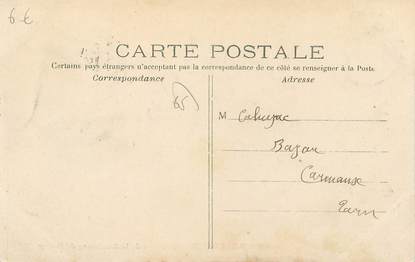 6 €
CARTE POSTALE
Certains pays étrangers n'acceptant pas la correspondance de ce côté se renseigner à la Poste.
Correspondance Adresse
65
M Cahuzac
Bazar
Carmaux
Tarn